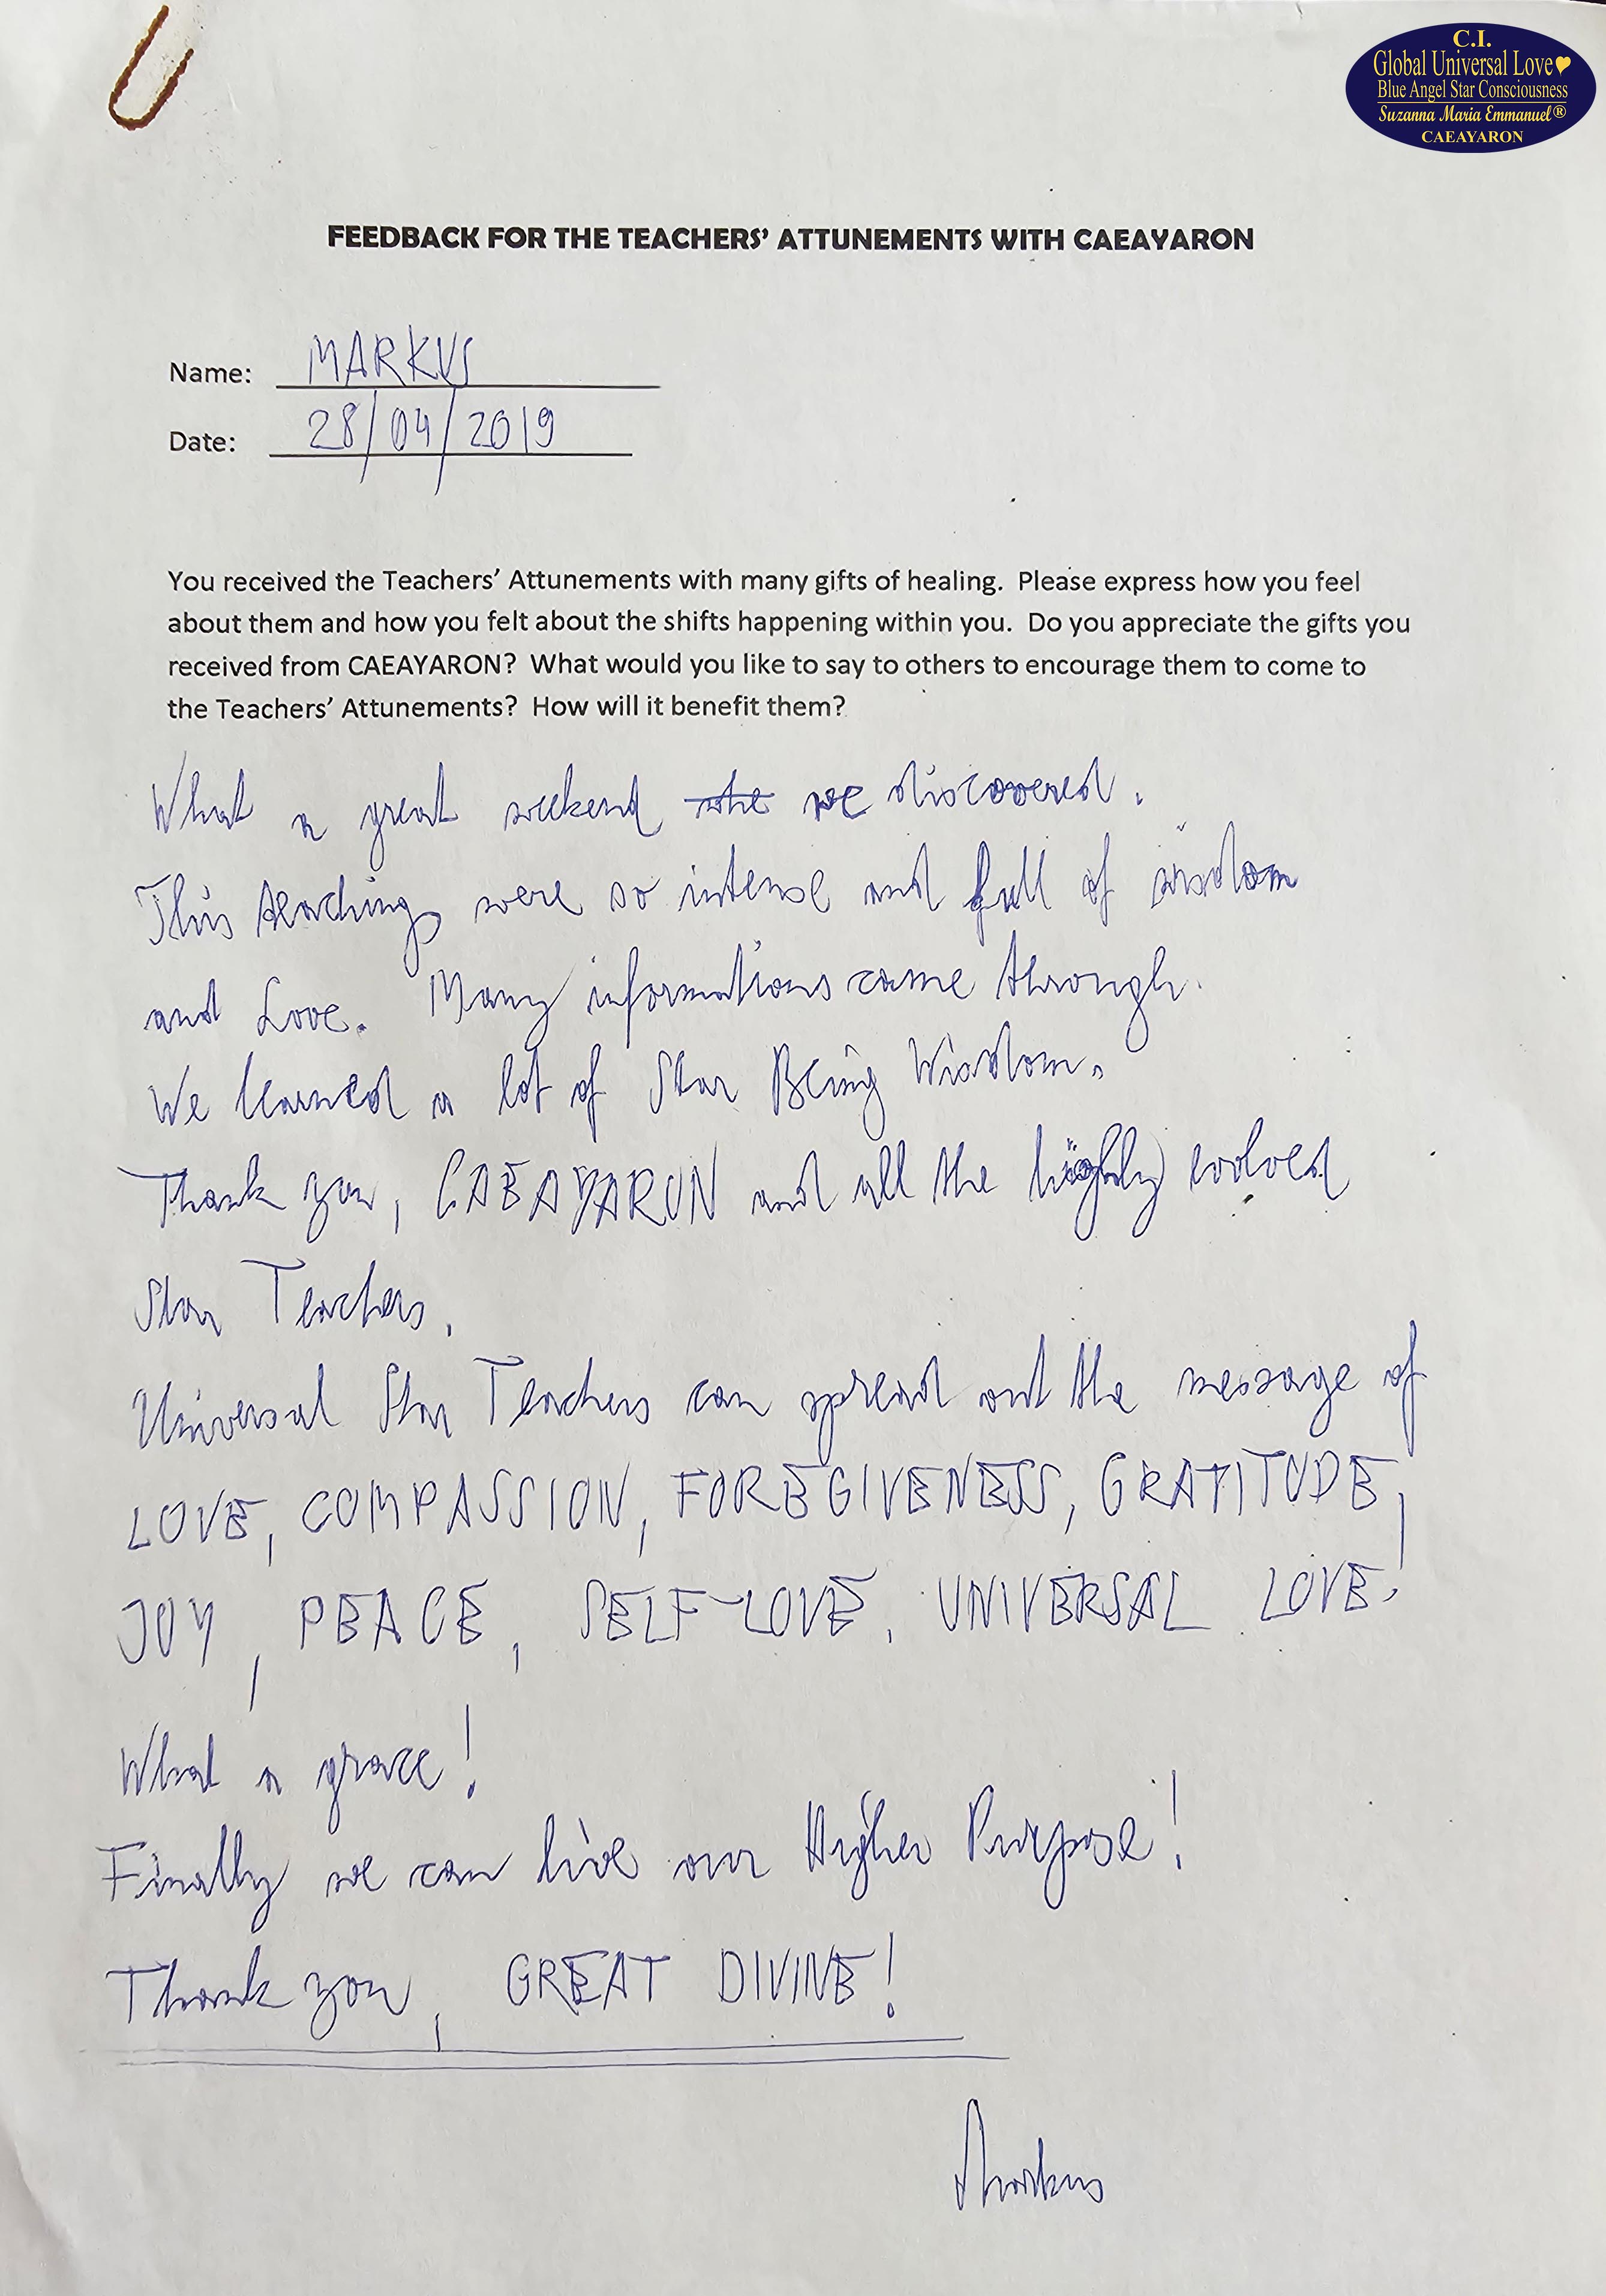 C.I.
Global Universal Love
Blue Angel Star Consciousness
Suzanna Maria Emmanuel®
CAEAYARON
FEEDBACK FOR THE TEACHERS' ATTUNEMENTS WITH CAEAYARON
Name: MARKUS
Date: 28/04/2019
You received the Teachers' Attunements with many gifts of healing. Please express how you feel
about them and how you felt about the shifts happening within you. Do you appreciate the gifts you
received from CAEAYARON? What would you like to say to others to encourage them to come to
the Teachers' Attunements? How will it benefit them?
What a great weekend we discovered.
This teachings were so intense and full of wisdom
and Love. Many informations came through.
We learned a lot of Star Being Wisdom.
Thank you, CAEAYARON and all the highly evolved
Star Teachers.
Universal Star Teachers can spread out the message of
LOVE, COMPASSION, FOREGIVENESS, GRATITUDE,
JOY, PEACE, SELF-LOVE, UNIVERSAL LOVE!
What a grace!
Finally we can live our Higher Purpose!
Thank you, GREAT DIVINE!
Markus